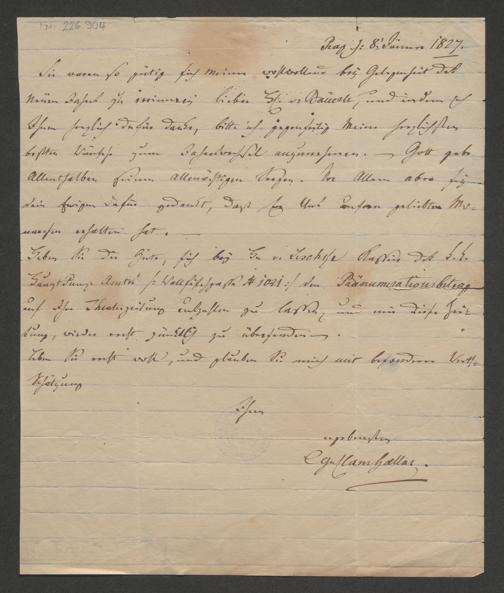 226.904
Prag d: 8t Jänner 1827.
Sie waren so gütig sich meiner wohlwollend bey Gelegenheit des
neuen Jahres zu erinnern lieber H: v Bäuerle, und indem ich
Ihnen herzlich dafür danke, bitte ich gegenseitig meine herzlichsten
besten Wünsche zum Jahreswechsel anzunehmen. – Gott gebe
Allenthalben seinen allmächtigen Segen. Vor Allem aber sey
dem Ewigen dafür gedankt, daß er Uns unsern geliebten Mo-
narchen erhalten hat. –
Haben Sie die Güte, sich bey H: v Kassier des k.k.
Haupt Amts /: Wollzeile # 1021 :/ den Pränumerationsbetrag
auf Ihre Theaterzeitung auszahlen zu lassen, und mir diese Zei-
tung, wieder recht pünktlich zu übersenden. –
Leben Sie recht wohl, und glauben Sie mich mit besonderer Werth-
Schätzung
Ihren
ergebensten
Clam Gallas.